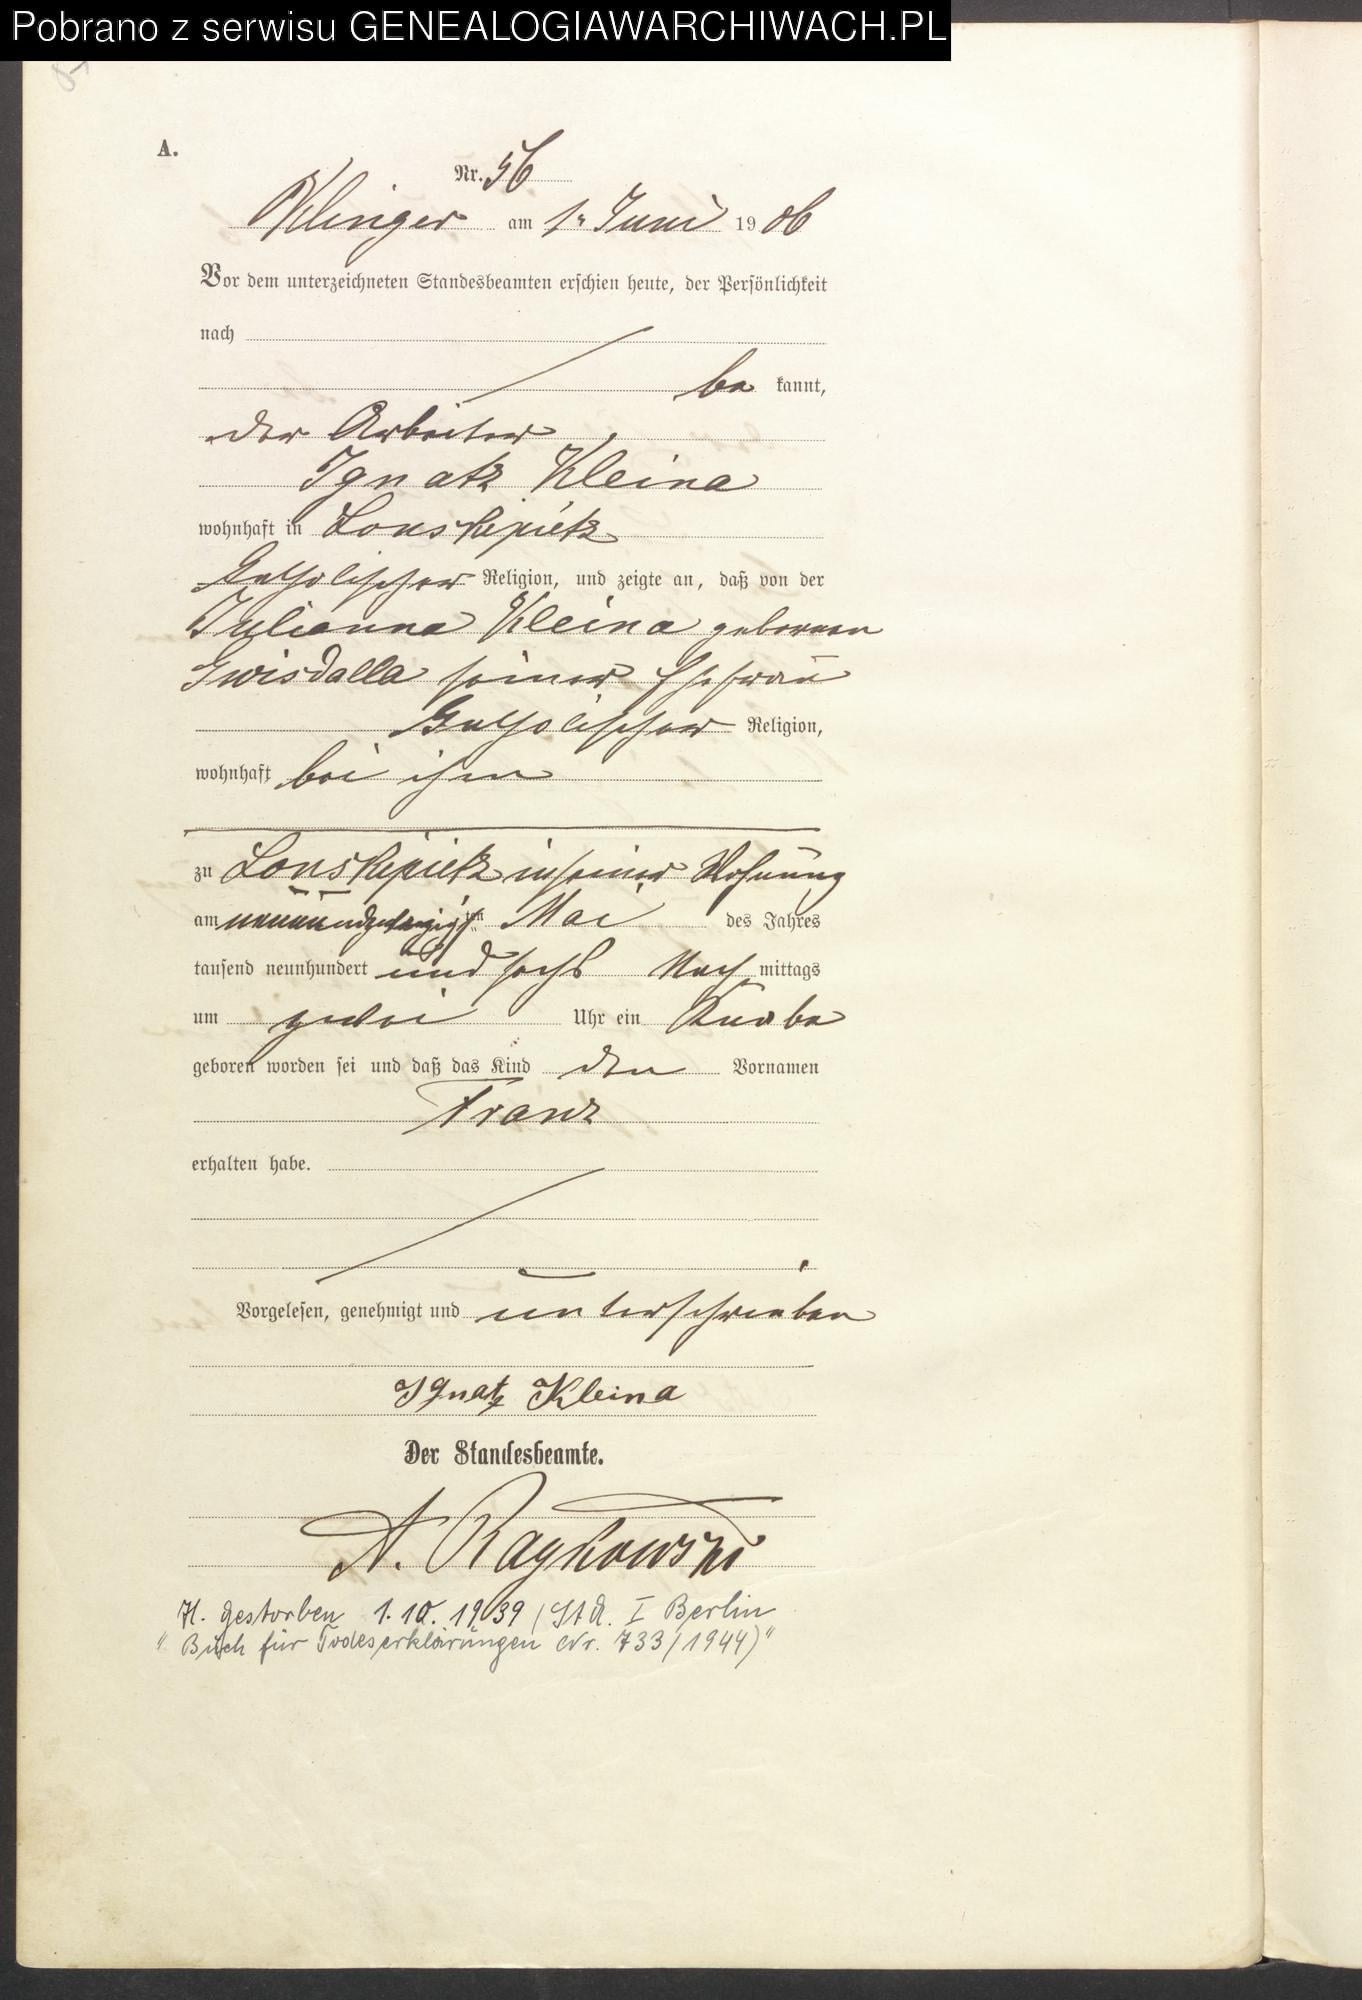 Pobrano z serwisu GENEALOGIAWARCHIWACH.PL
A.
Nr. 56
Klinger am 1. Juni 1906
Vor dem unterzeichneten Standesbeamten erschien heute, der Persönlichkeit
nach
be kannt,
der Arbeiter
Ignatz Kleina
wohnhaft in Lonskipietz
katholischer Religion, und zeigte an, daß von der
Julianna Kleina geborenen
Gwisdalla seiner Ehefrau
katholischer Religion,
wohnhaft bei ihm
zu Lonskipietz in seiner Wohnung
am neunundzwanzigsten Mai des Jahres
tausend neunhundert und sechs Nach mittags
um zwei Uhr ein Knabe
geboren worden sei und daß das Kind den Vornamen
Franz
erhalten habe.
Vorgelesen, genehmigt und unterschrieben
Ignatz Kleina
Der Standesbeamte.
A. Raykowski
H. gestorben 1.10.1939 (StA. I Berlin
"Buch für Todeserklärungen Nr. 733/1944)"